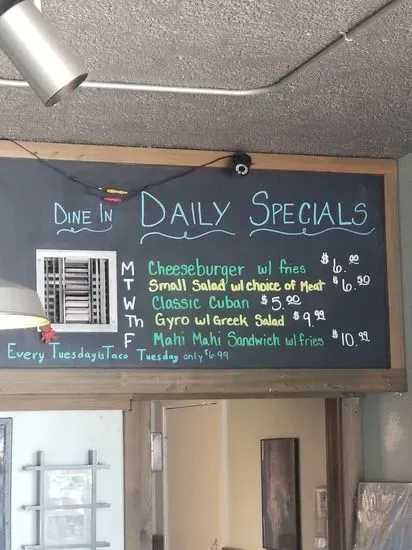 DINE IN DAILY SPECIALS
M Cheeseburger w/ fries $6.00
T Small Salad w/ choice of Meat $6.50
W Classic Cuban $5.00
Th Gyro w/ Greek Salad $9.99
F Mahi Mahi Sandwich w/ fries $10.99
Every Tuesday is Taco Tuesday only $6.99